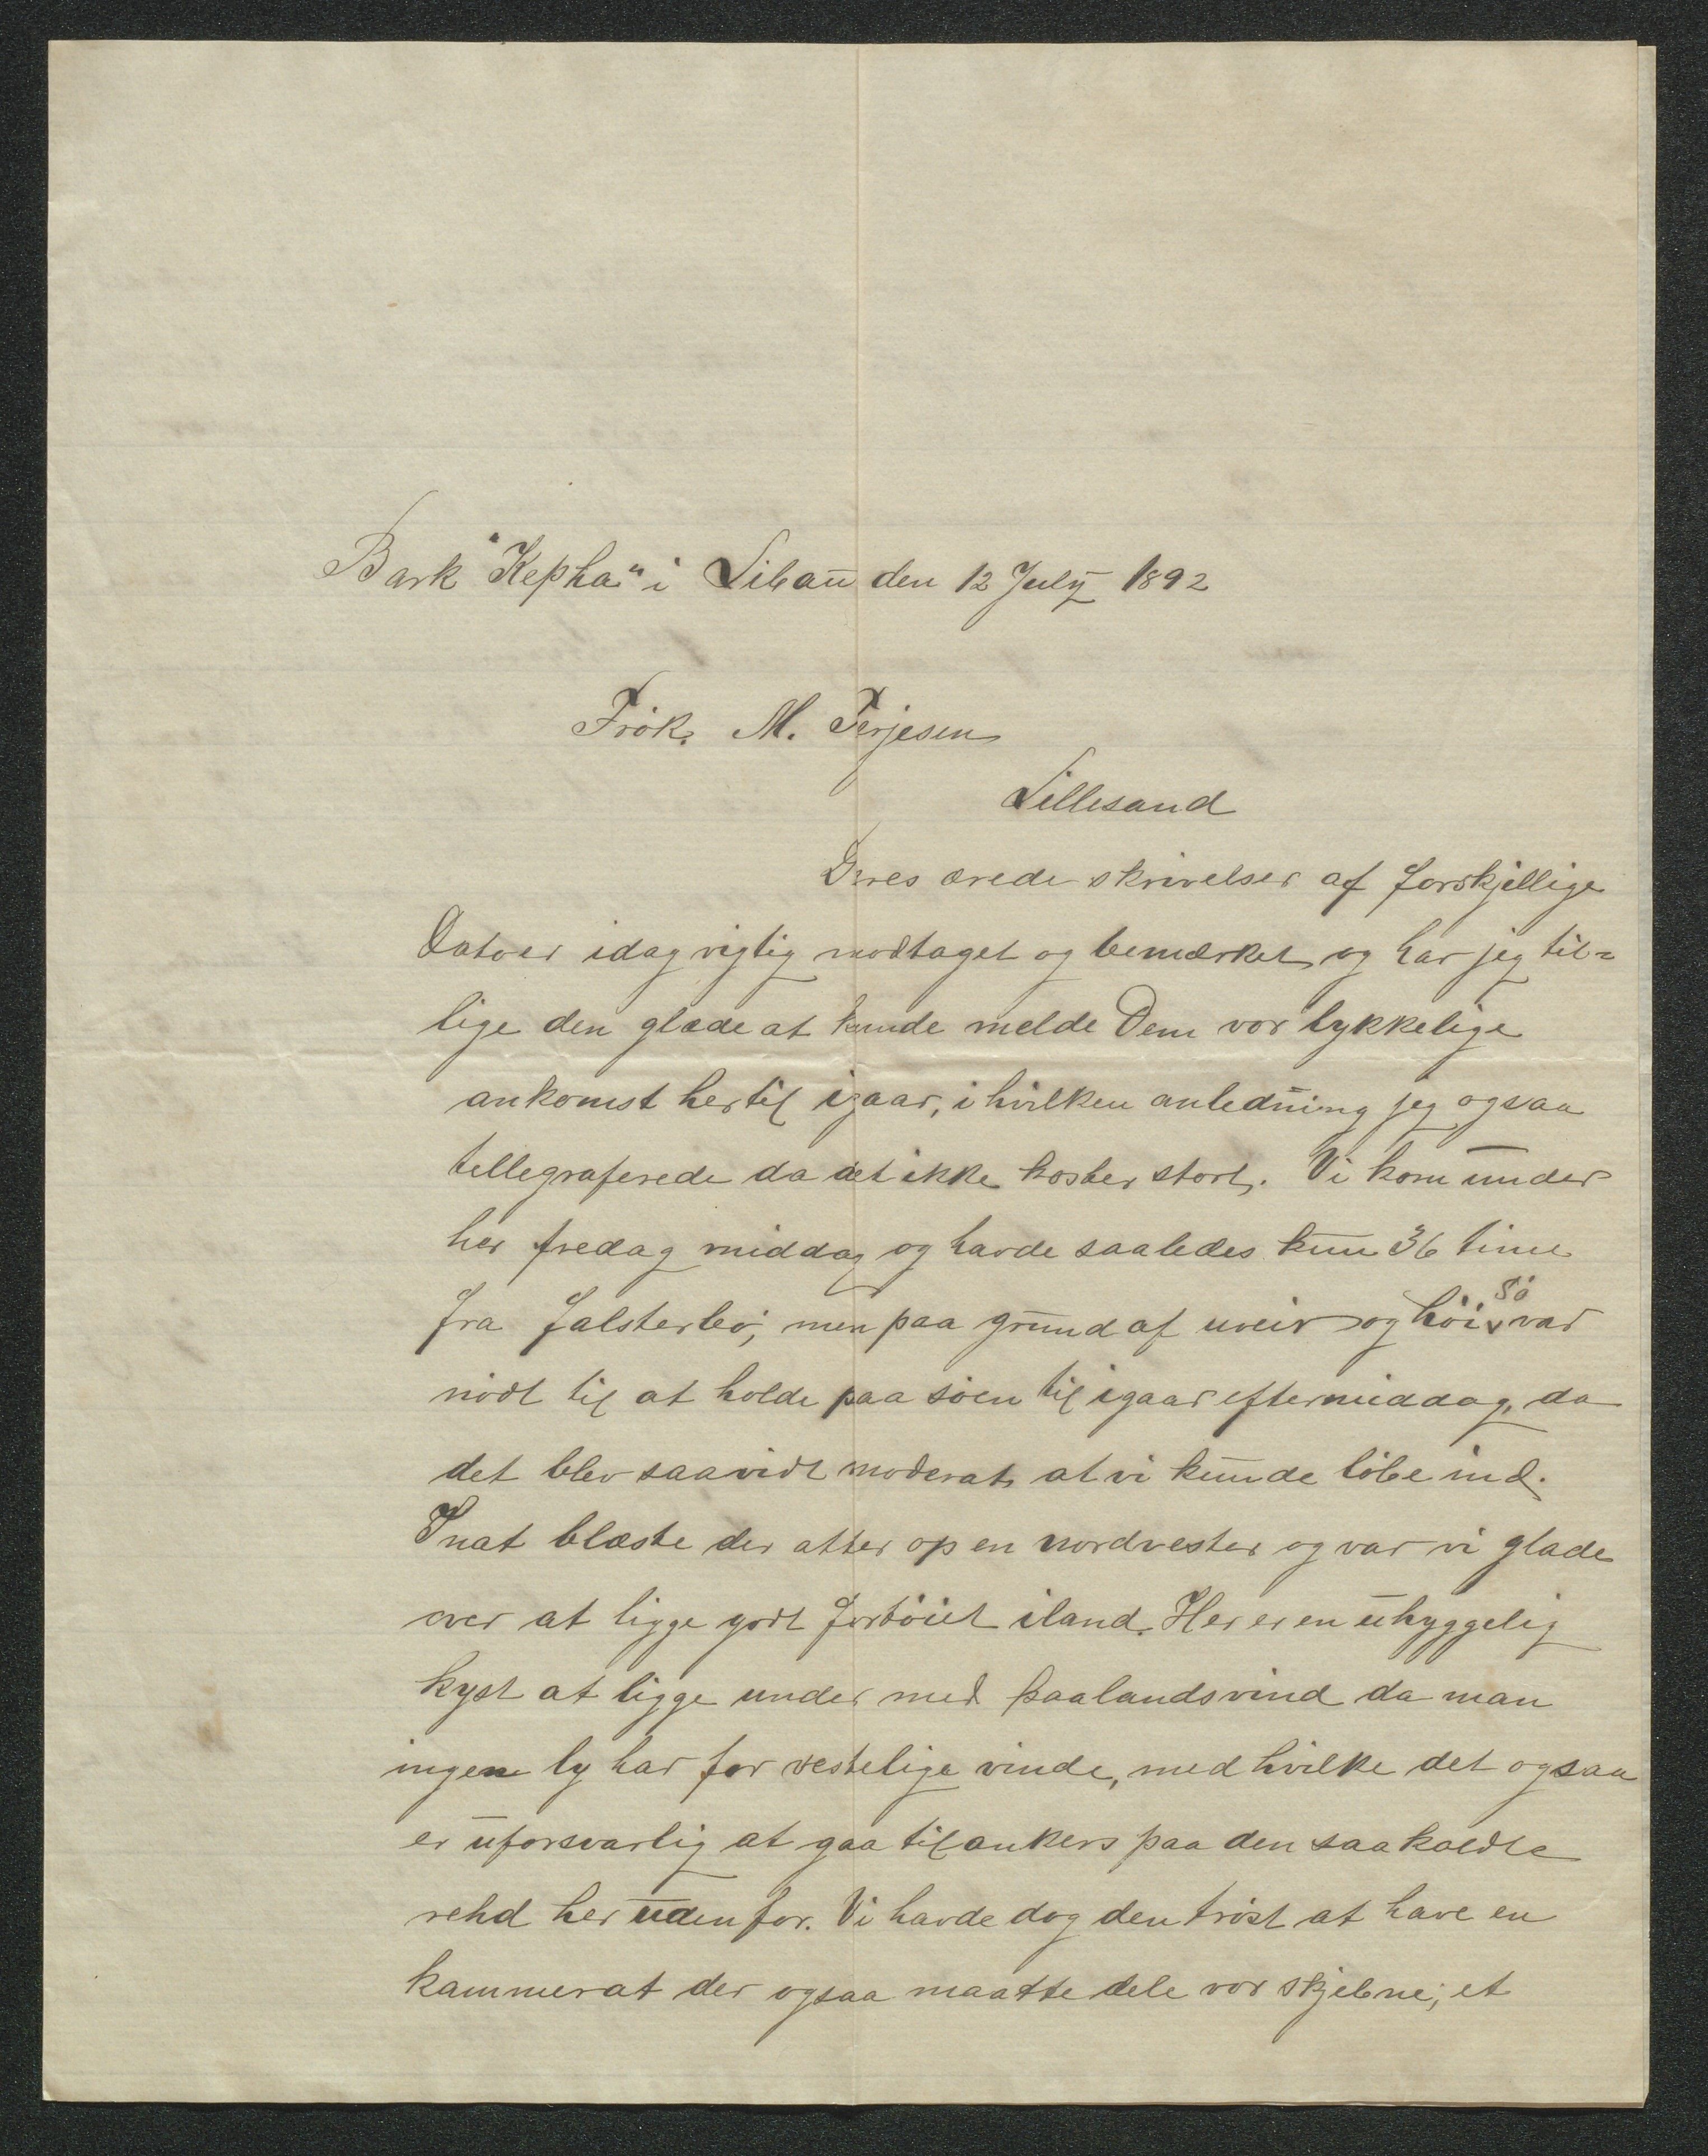 Bark "Kepha" i Libau den 12 July 1892
Frøk. M. Terjesen
Lillesand
Deres ærede skrivelser af forskjellige
Datoer idag rigtig modtaget og bemærket og har jeg til=
lige den glæde at kunde melde Dem vor lykkelige
ankomst hertil igaar, i hvilken anledning jeg ogsaa
tellegraferede da det ikke koster stort. Vi kom under
her fredag middag og havde saaledes kun 36 timer
fra Falsterbo, men paa grund af uveir og høi sö var
nödt til at holde paa söen til igaar eftermiddag, da
det blev saavidt moderat at vi kunde löbe ind.
Inat blæste der atter op en nordvester og var vi glade
over at ligge godt fortöiet iland. Her er en uhyggelig
kyst at ligge under med paalandsvind da man
ingen ly har for vestelige vinde, med hvilke det ogsaa
er uforsvarlig at gaa til ankers paa den saakaldte
rehd her udenfor. Vi havde dog den tröst at have en
kammerat der ogsaa maatte dele vor skjebne; et